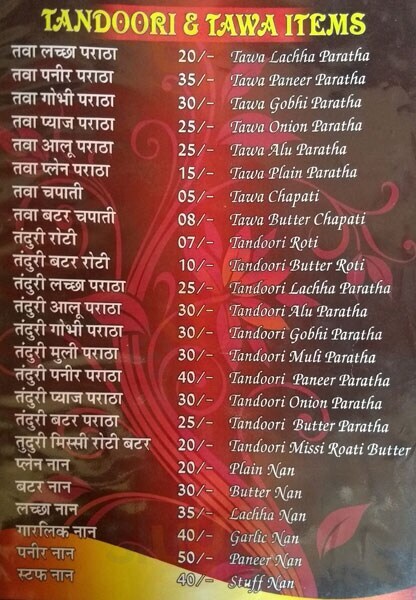 TANDOORI & TAWA ITEMS
तवा लच्छा पराठा 20/- Tawa Lachha Paratha
तवा पनीर पराठा 35/- Tawa Paneer Paratha
तवा गोभी पराठा 30/- Tawa Gobhi Paratha
तवा प्याज पराठा 25/- Tawa Onion Paratha
तवा आलू पराठा 25/- Tawa Alu Paratha
तवा प्लेन पराठा 15/- Tawa Plain Paratha
तवा चपाती 05/- Tawa Chapati
तवा बटर चपाती 08/- Tawa Butter Chapati
तंदुरी रोटी 07/- Tandoori Roti
तंदुरी बटर रोटी 10/- Tandoori Butter Roti
तंदुरी लच्छा पराठा 25/- Tandoori Lachha Paratha
तंदुरी आलू पराठा 30/- Tandoori Alu Paratha
तंदुरी गोभी पराठा 30/- Tandoori Gobhi Paratha
तंदुरी मुली पराठा 30/- Tandoori Muli Paratha
तंदुरी पनीर पराठा 40/- Tandoori Paneer Paratha
तंदुरी प्याज पराठा 30/- Tandoori Onion Paratha
तंदुरी बटर पराठा 25/- Tandoori Butter Paratha
तुदुरी मिस्सी रोटी बटर 20/- Tandoori Missi Roati Butter
प्लेन नान 20/- Plain Nan
बटर नान 30/- Butter Nan
लच्छा नान 35/- Lachha Nan
गारलिक नान 40/- Garlic Nan
पनीर नान 50/- Paneer Nan
स्टफ नान 40/- Stuff Nan